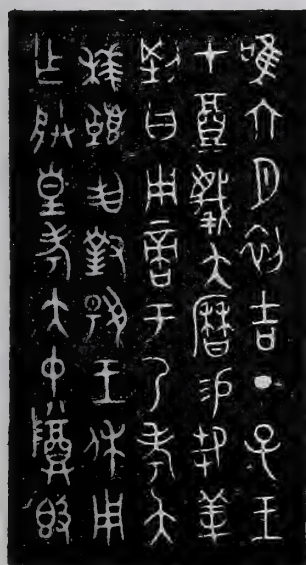 唯六月初吉丁巳王
才奠蔑大曆易芻𦍧
犅曰用啻于乃考大
拜𩒨首對揚王休用
乍朕皇考大中尊𣪘